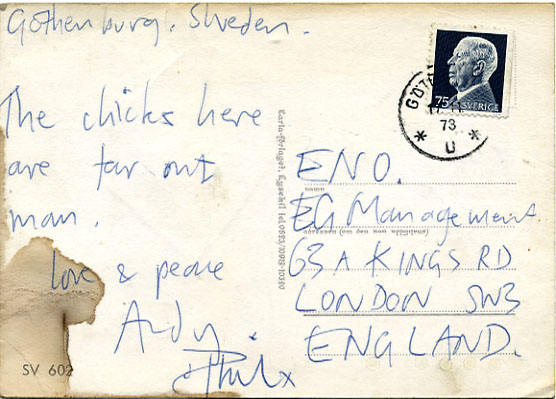 Gothenburg. Sweden.
The chicks here
are far out
man.
love & peace
Andy.
Phil x
SV 602
75 SVERIGE
GÖT
73
U
ENO.
EG Management.
63A KINGS RD
LONDON SW3
ENGLAND.